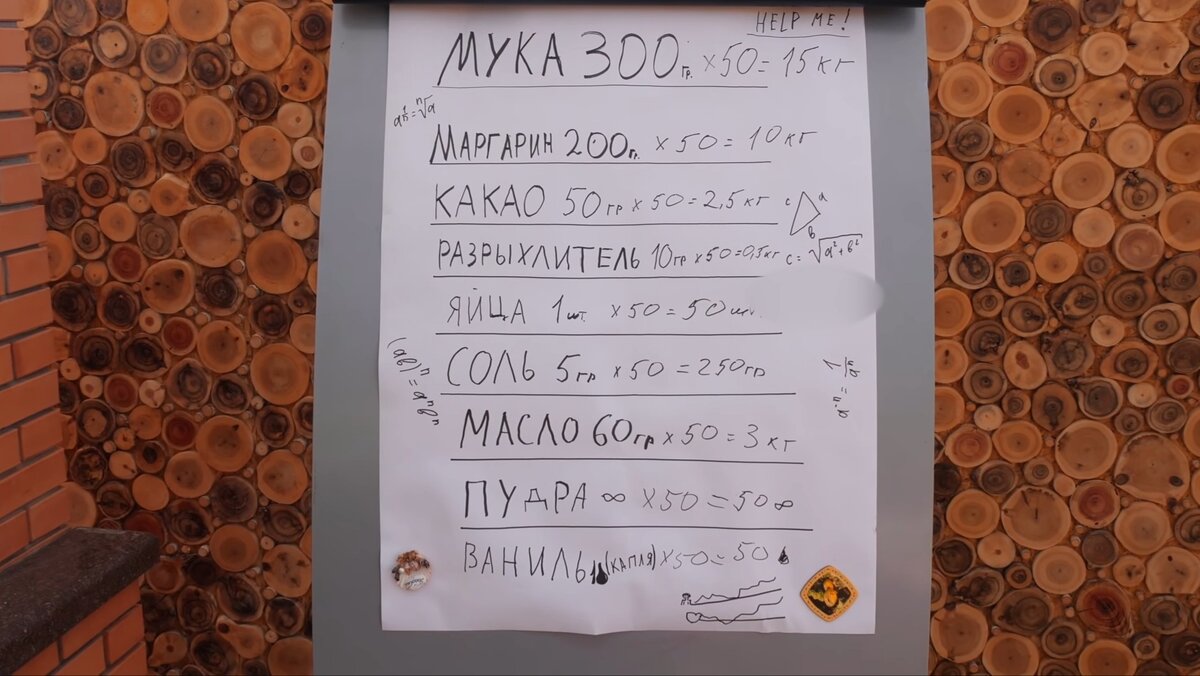 HELP ME!
МУКА 300гр. ×50=15кг
a^(1/n)=ⁿ√a
МАРГАРИН 200г. ×50=10кг
КАКАО 50гр ×50=2,5кг
c a b
РАЗРЫХЛИТЕЛЬ 10гр ×50=0,5кг
c=√(a²+b²)
ЯЙЦА 1шт. ×50=50шт.
(ab)ⁿ=aⁿbⁿ
СОЛЬ 5гр ×50=250гр
МАСЛО 60гр ×50=3кг
ПУДРА ∞ ×50=50∞
ВАНИЛЬ 1 (КАПЛЯ) ×50=50